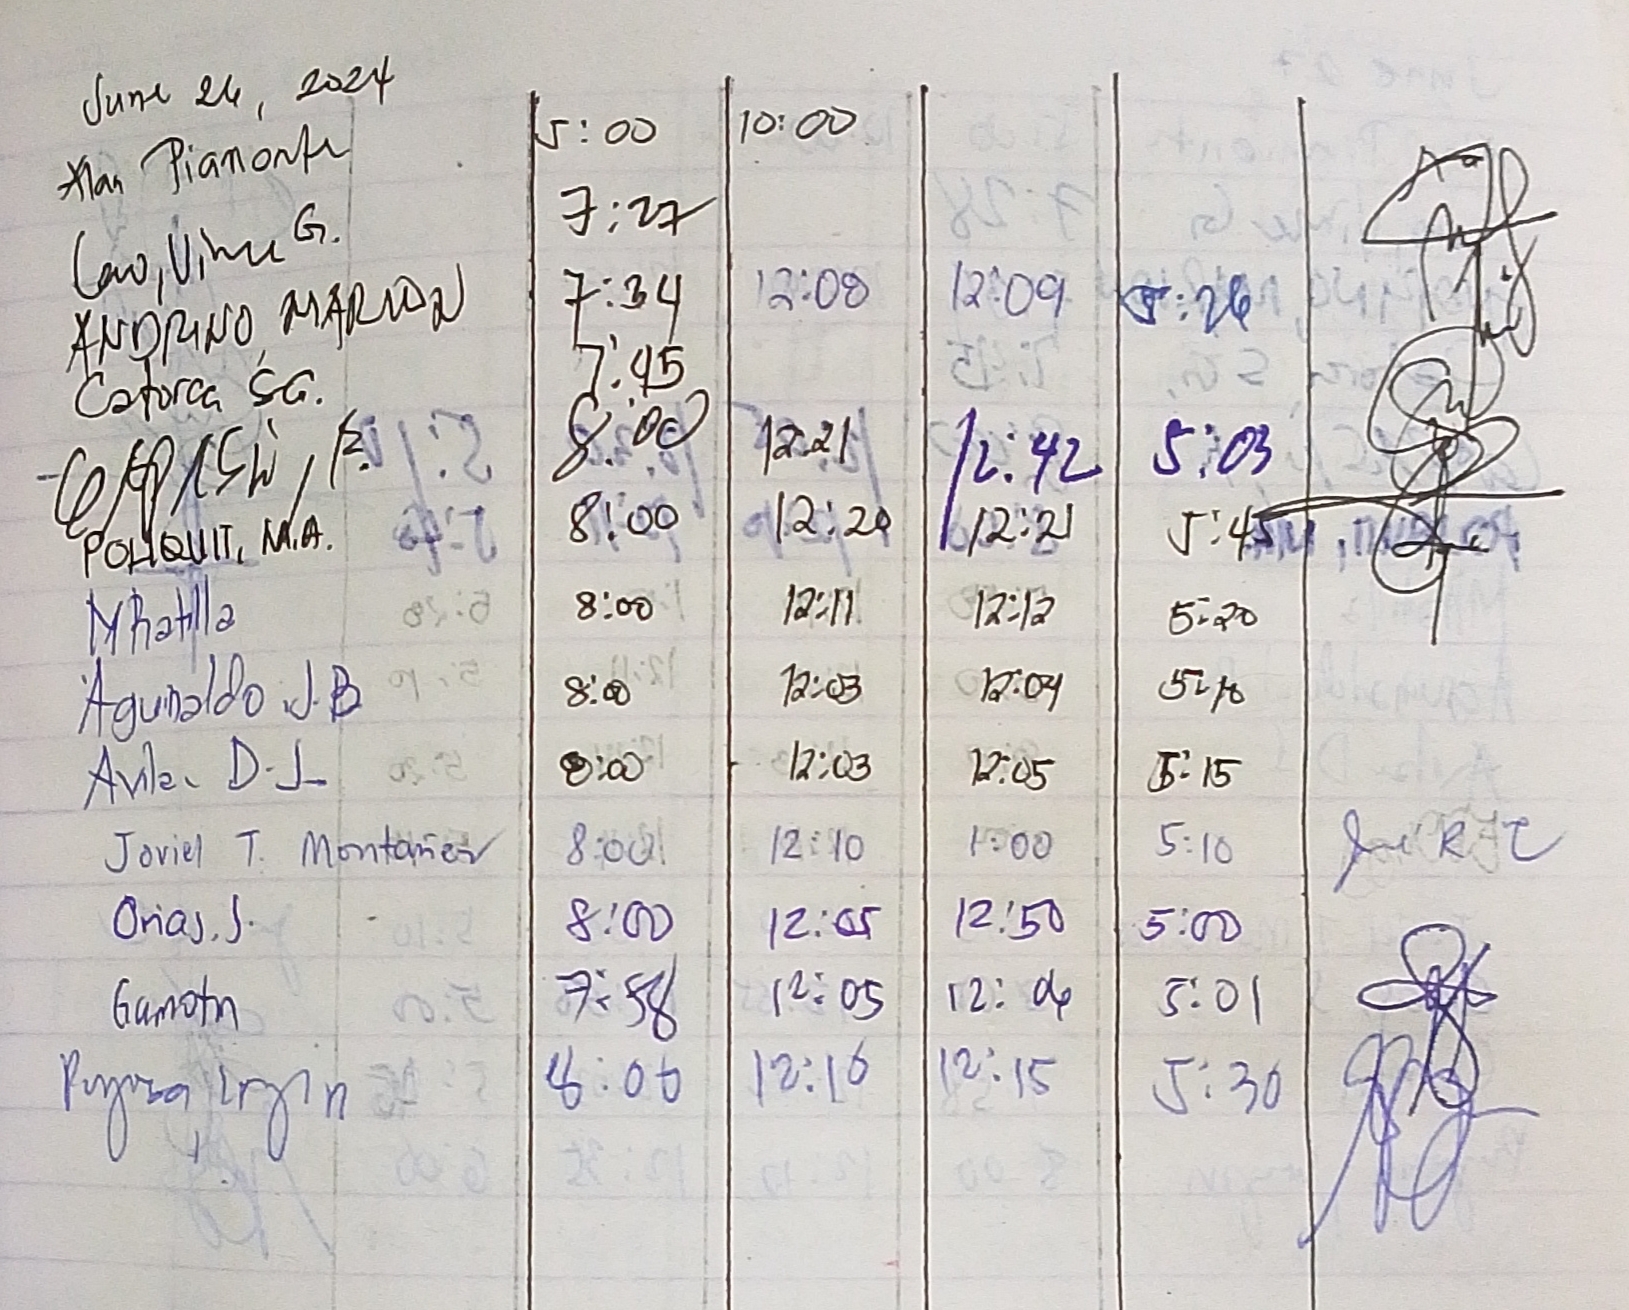 June 26, 2024
Alan Piamonte 5:00 10:00
Cavo, Vince G. 7:27
ANDRINO, MARION 7:34 12:08 12:09 5:26
Catorca SG. 7:45
8:00 12:21 12:42 5:03
POLIQUIT, M.A. 8:00 12:20 12:21 5:45
MRatilla 8:00 12:11 12:12 5:20
Aguinaldo J.B 8:00 12:03 12:04 5:10
Avila D.J 8:00 12:03 12:05 5:15
Joviel T. Montañez 8:00 12:10 1:00 5:10
Orias, J. 8:00 12:05 12:50 5:00
Gamotin 7:58 12:05 12:06 5:01
8:00 12:10 12:15 5:30